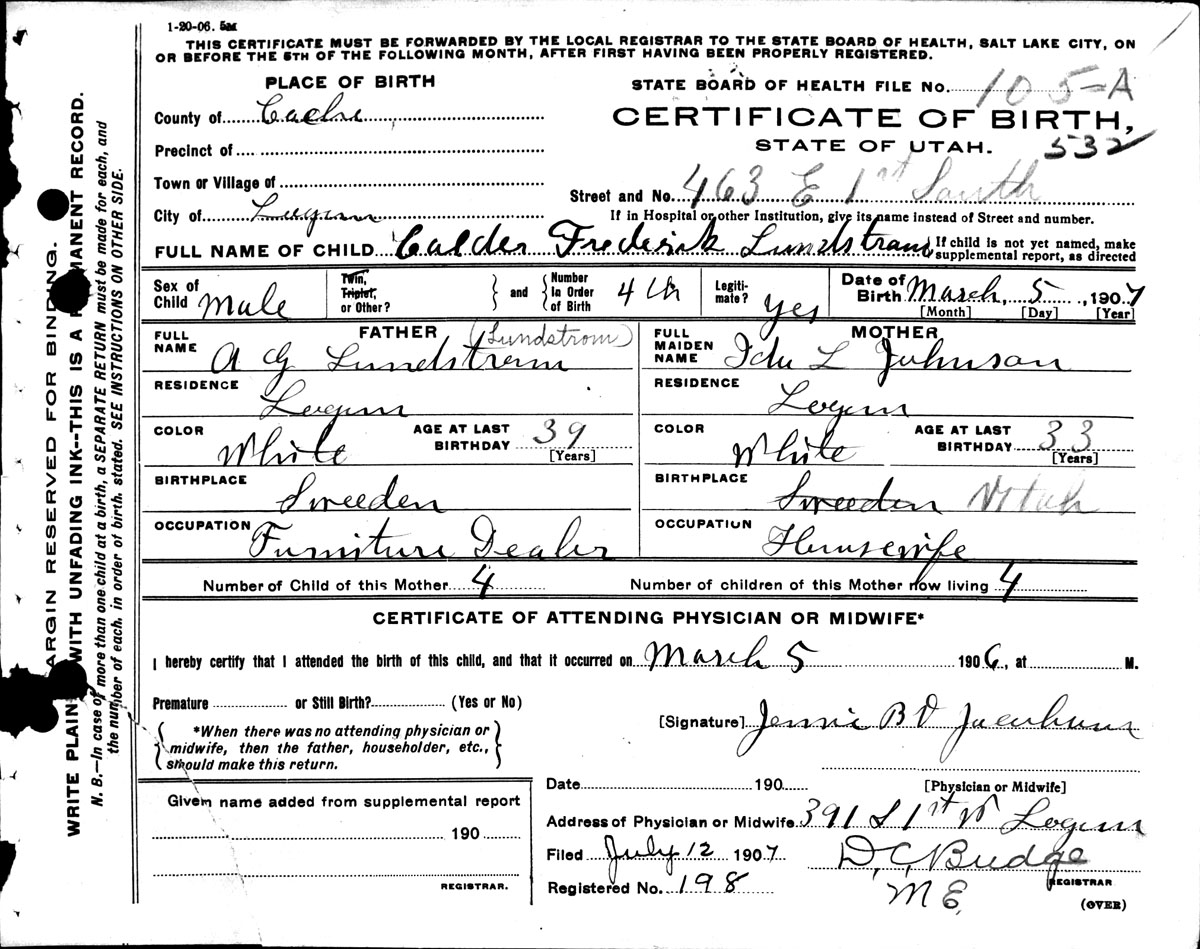 1-20-06. 5M
THIS CERTIFICATE MUST BE FORWARDED BY THE LOCAL REGISTRAR TO THE STATE BOARD OF HEALTH, SALT LAKE CITY, ON
OR BEFORE THE 5TH OF THE FOLLOWING MONTH, AFTER FIRST HAVING BEEN PROPERLY REGISTERED.
PLACE OF BIRTH
County of Cache
Precinct of
Town or Village of
City of Logan
STATE BOARD OF HEALTH FILE No. 105-A
CERTIFICATE OF BIRTH,
STATE OF UTAH. 532
Street and No. 463 E 1st South
If in Hospital or other Institution, give its name instead of Street and number.
FULL NAME OF CHILD Calder Frederick Lundstrom { If child is not yet named, make
supplemental report, as directed
Sex of Child Male
Twin, Triplet, or Other? } and { Number in Order of Birth 4th
Legitimate? Yes
Date of Birth March 5, 1907
[Month] [Day] [Year]
FATHER
FULL NAME A G Lundstrom (Lundstrom)
RESIDENCE Logan
COLOR White
AGE AT LAST BIRTHDAY 39
[Years]
BIRTHPLACE Sweeden
OCCUPATION Furniture Dealer
MOTHER
FULL MAIDEN NAME Ida L Johnson
RESIDENCE Logan
COLOR White
AGE AT LAST BIRTHDAY 33
[Years]
BIRTHPLACE Sweeden Utah
OCCUPATION Housewife
Number of Child of this Mother 4 Number of children of this Mother now living 4
CERTIFICATE OF ATTENDING PHYSICIAN OR MIDWIFE*
I hereby certify that I attended the birth of this child, and that it occurred on March 5 1906, at M.
Premature or Still Birth? (Yes or No)
{ *When there was no attending physician or
midwife, then the father, householder, etc.,
should make this return. }
[Signature] Jennie B
[Physician or Midwife]
Given name added from supplemental report
190
REGISTRAR.
Date 190
Address of Physician or Midwife 391 S 1st W Logan
Filed July 12 1907
D. C. Budge
REGISTRAR
Registered No. 198
M E.
(OVER)
MARGIN RESERVED FOR BINDING.
WRITE PLAINLY WITH UNFADING INK--THIS IS A PERMANENT RECORD.
N. B.—In case of more than one child at a birth, a SEPARATE RETURN must be made for each, and
the number of each, in order of birth, stated. SEE INSTRUCTIONS ON OTHER SIDE.